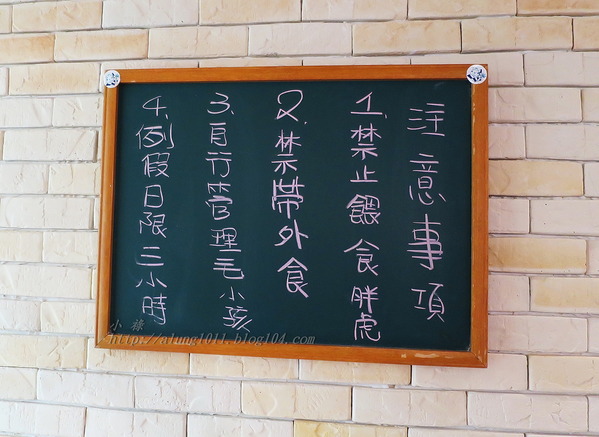 注意事項
1.禁止餵食胖虎
2.禁帶外食
3.自行管理毛小孩
4.例假日限三小時
小祿
http://alung1011.blog104.com